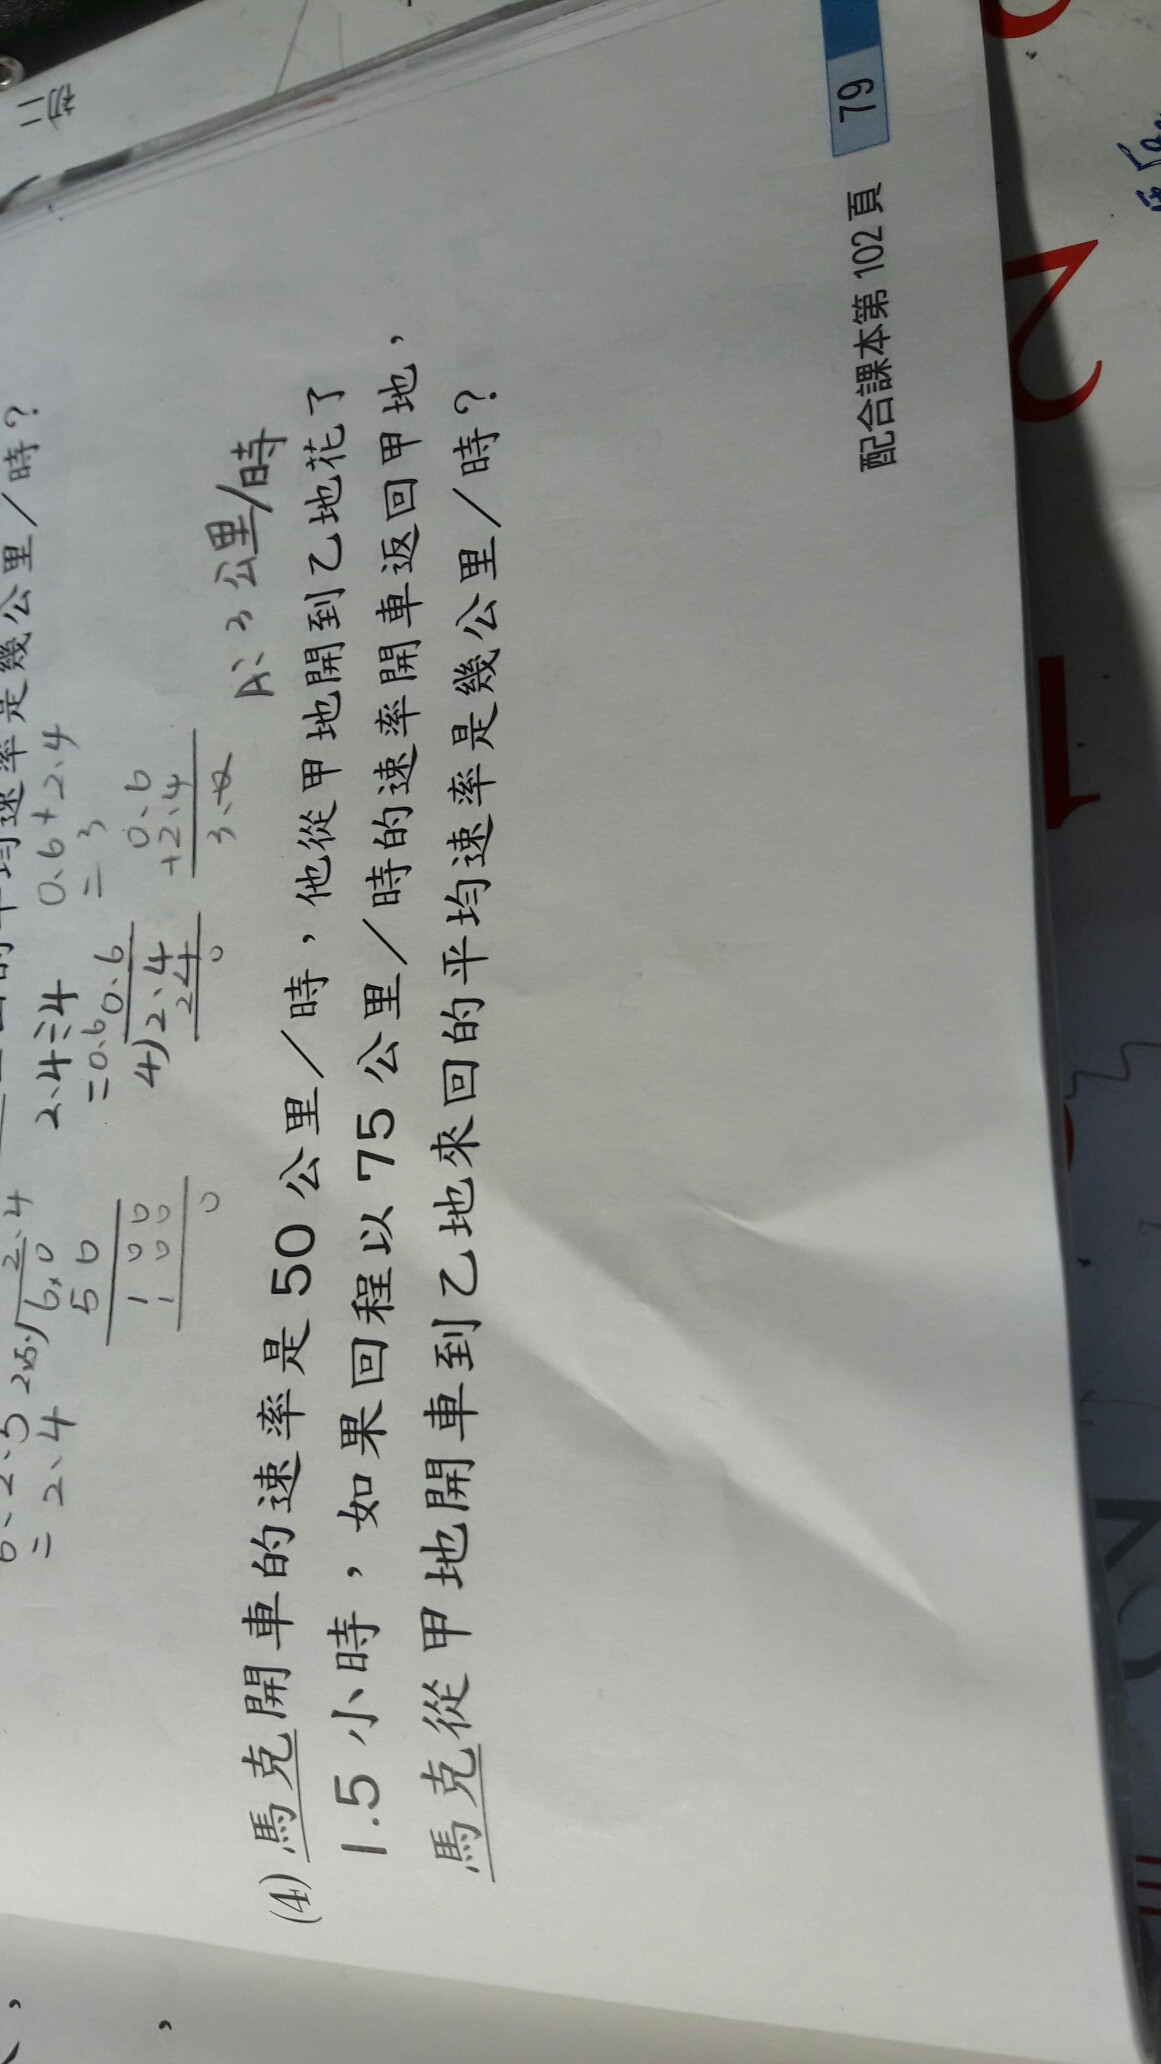 均速率是幾公里／時？
= 2.4
2.4
2.4÷4
=0.6
0.6
4)2.4
24
0
0.6+2.4
= 3
0.6
+2.4
3.0
A:3公里/時
(4) 馬克開車的速率是 50 公里／時，他從甲地開到乙地花了
1.5 小時，如果回程以 75 公里／時的速率開車返回甲地，
馬克從甲地開車到乙地來回的平均速率是幾公里／時？
配合課本第 102 頁
79